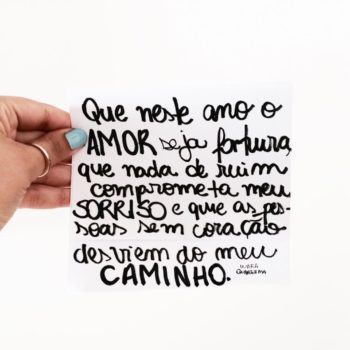 Que neste ano o
AMOR seja fartura,
que nada de ruim
comprometa meu
SORRISO e que as pes-
soas sem coração
desviem do meu
CAMINHO.